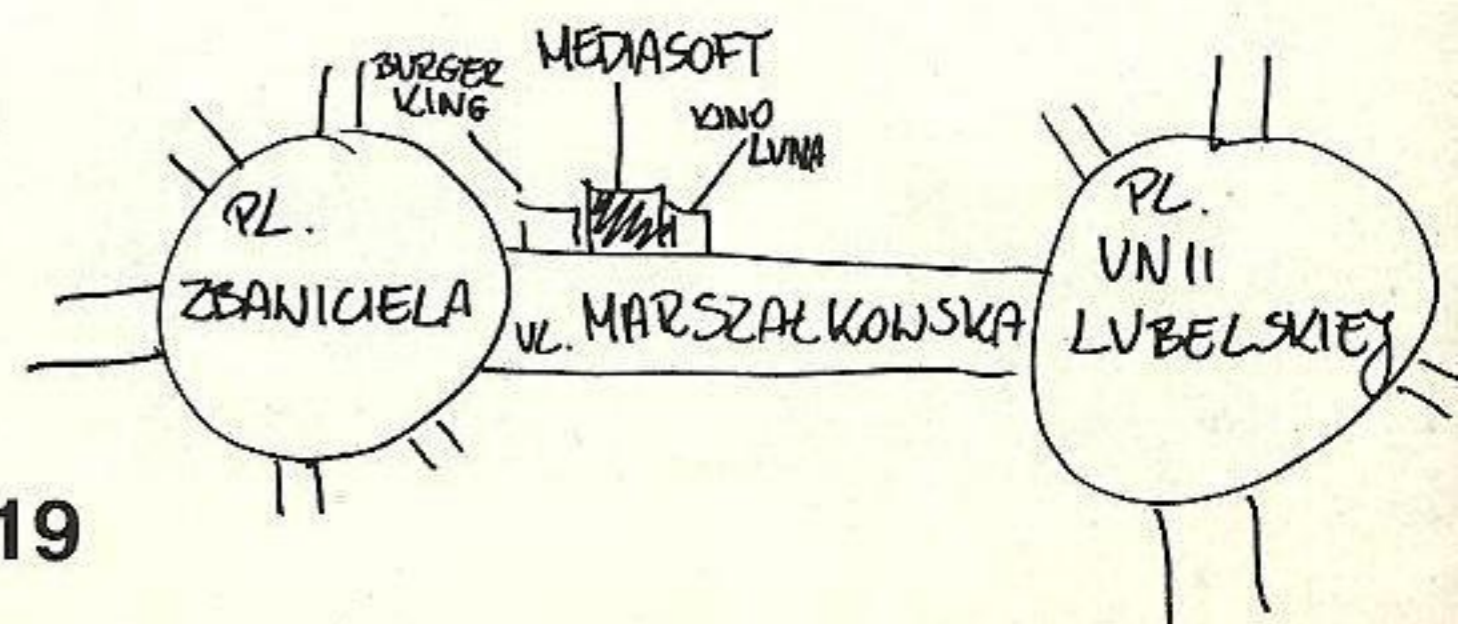 BURGER
KING
MEDIASOFT
KINO
LUNA
PL.
ZBAWICIELA
UL. MARSZAŁKOWSKA
PL.
UNII
LUBELSKIEJ
19